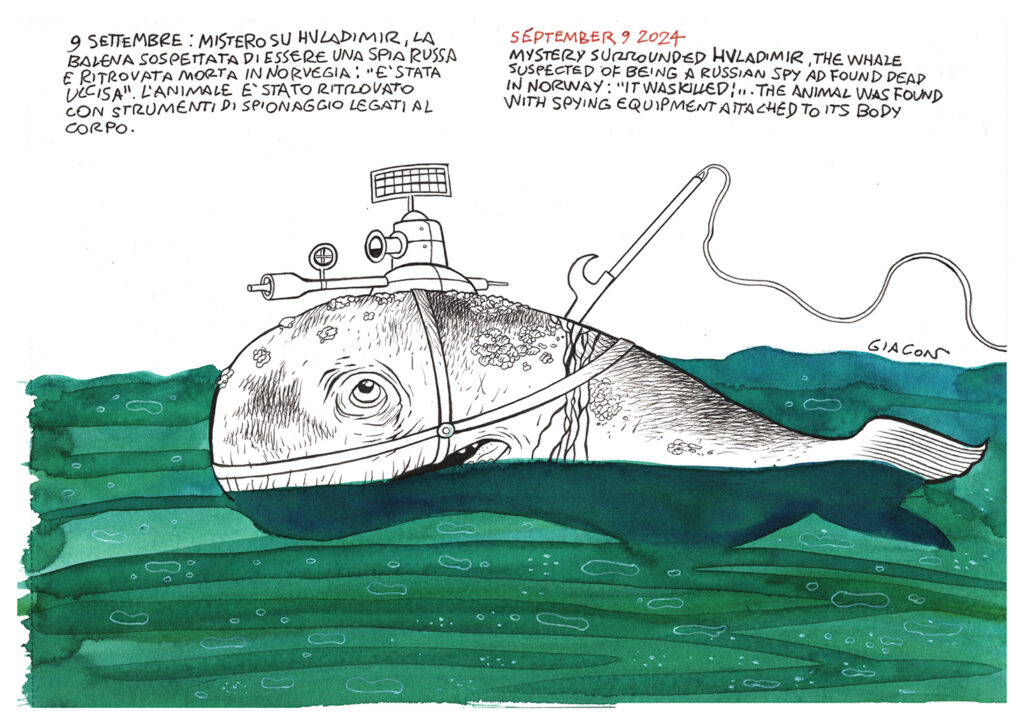 9 SETTEMBRE: MISTERO SU HVLADIMIR, LA
BALENA SOSPETTATA DI ESSERE UNA SPIA RUSSA
E RITROVATA MORTA IN NORVEGIA: "E' STATA
UCCISA". L'ANIMALE E' STATO RITROVATO
CON STRUMENTI DI SPIONAGGIO LEGATI AL
CORPO.
SEPTEMBER 9 2024
MYSTERY SURROUNDED HVLADIMIR, THE WHALE
SUSPECTED OF BEING A RUSSIAN SPY AD FOUND DEAD
IN NORWAY: "IT WAS KILLED!".. THE ANIMAL WAS FOUND
WITH SPYING EQUIPMENT ATTACHED TO ITS BODY
GIACON